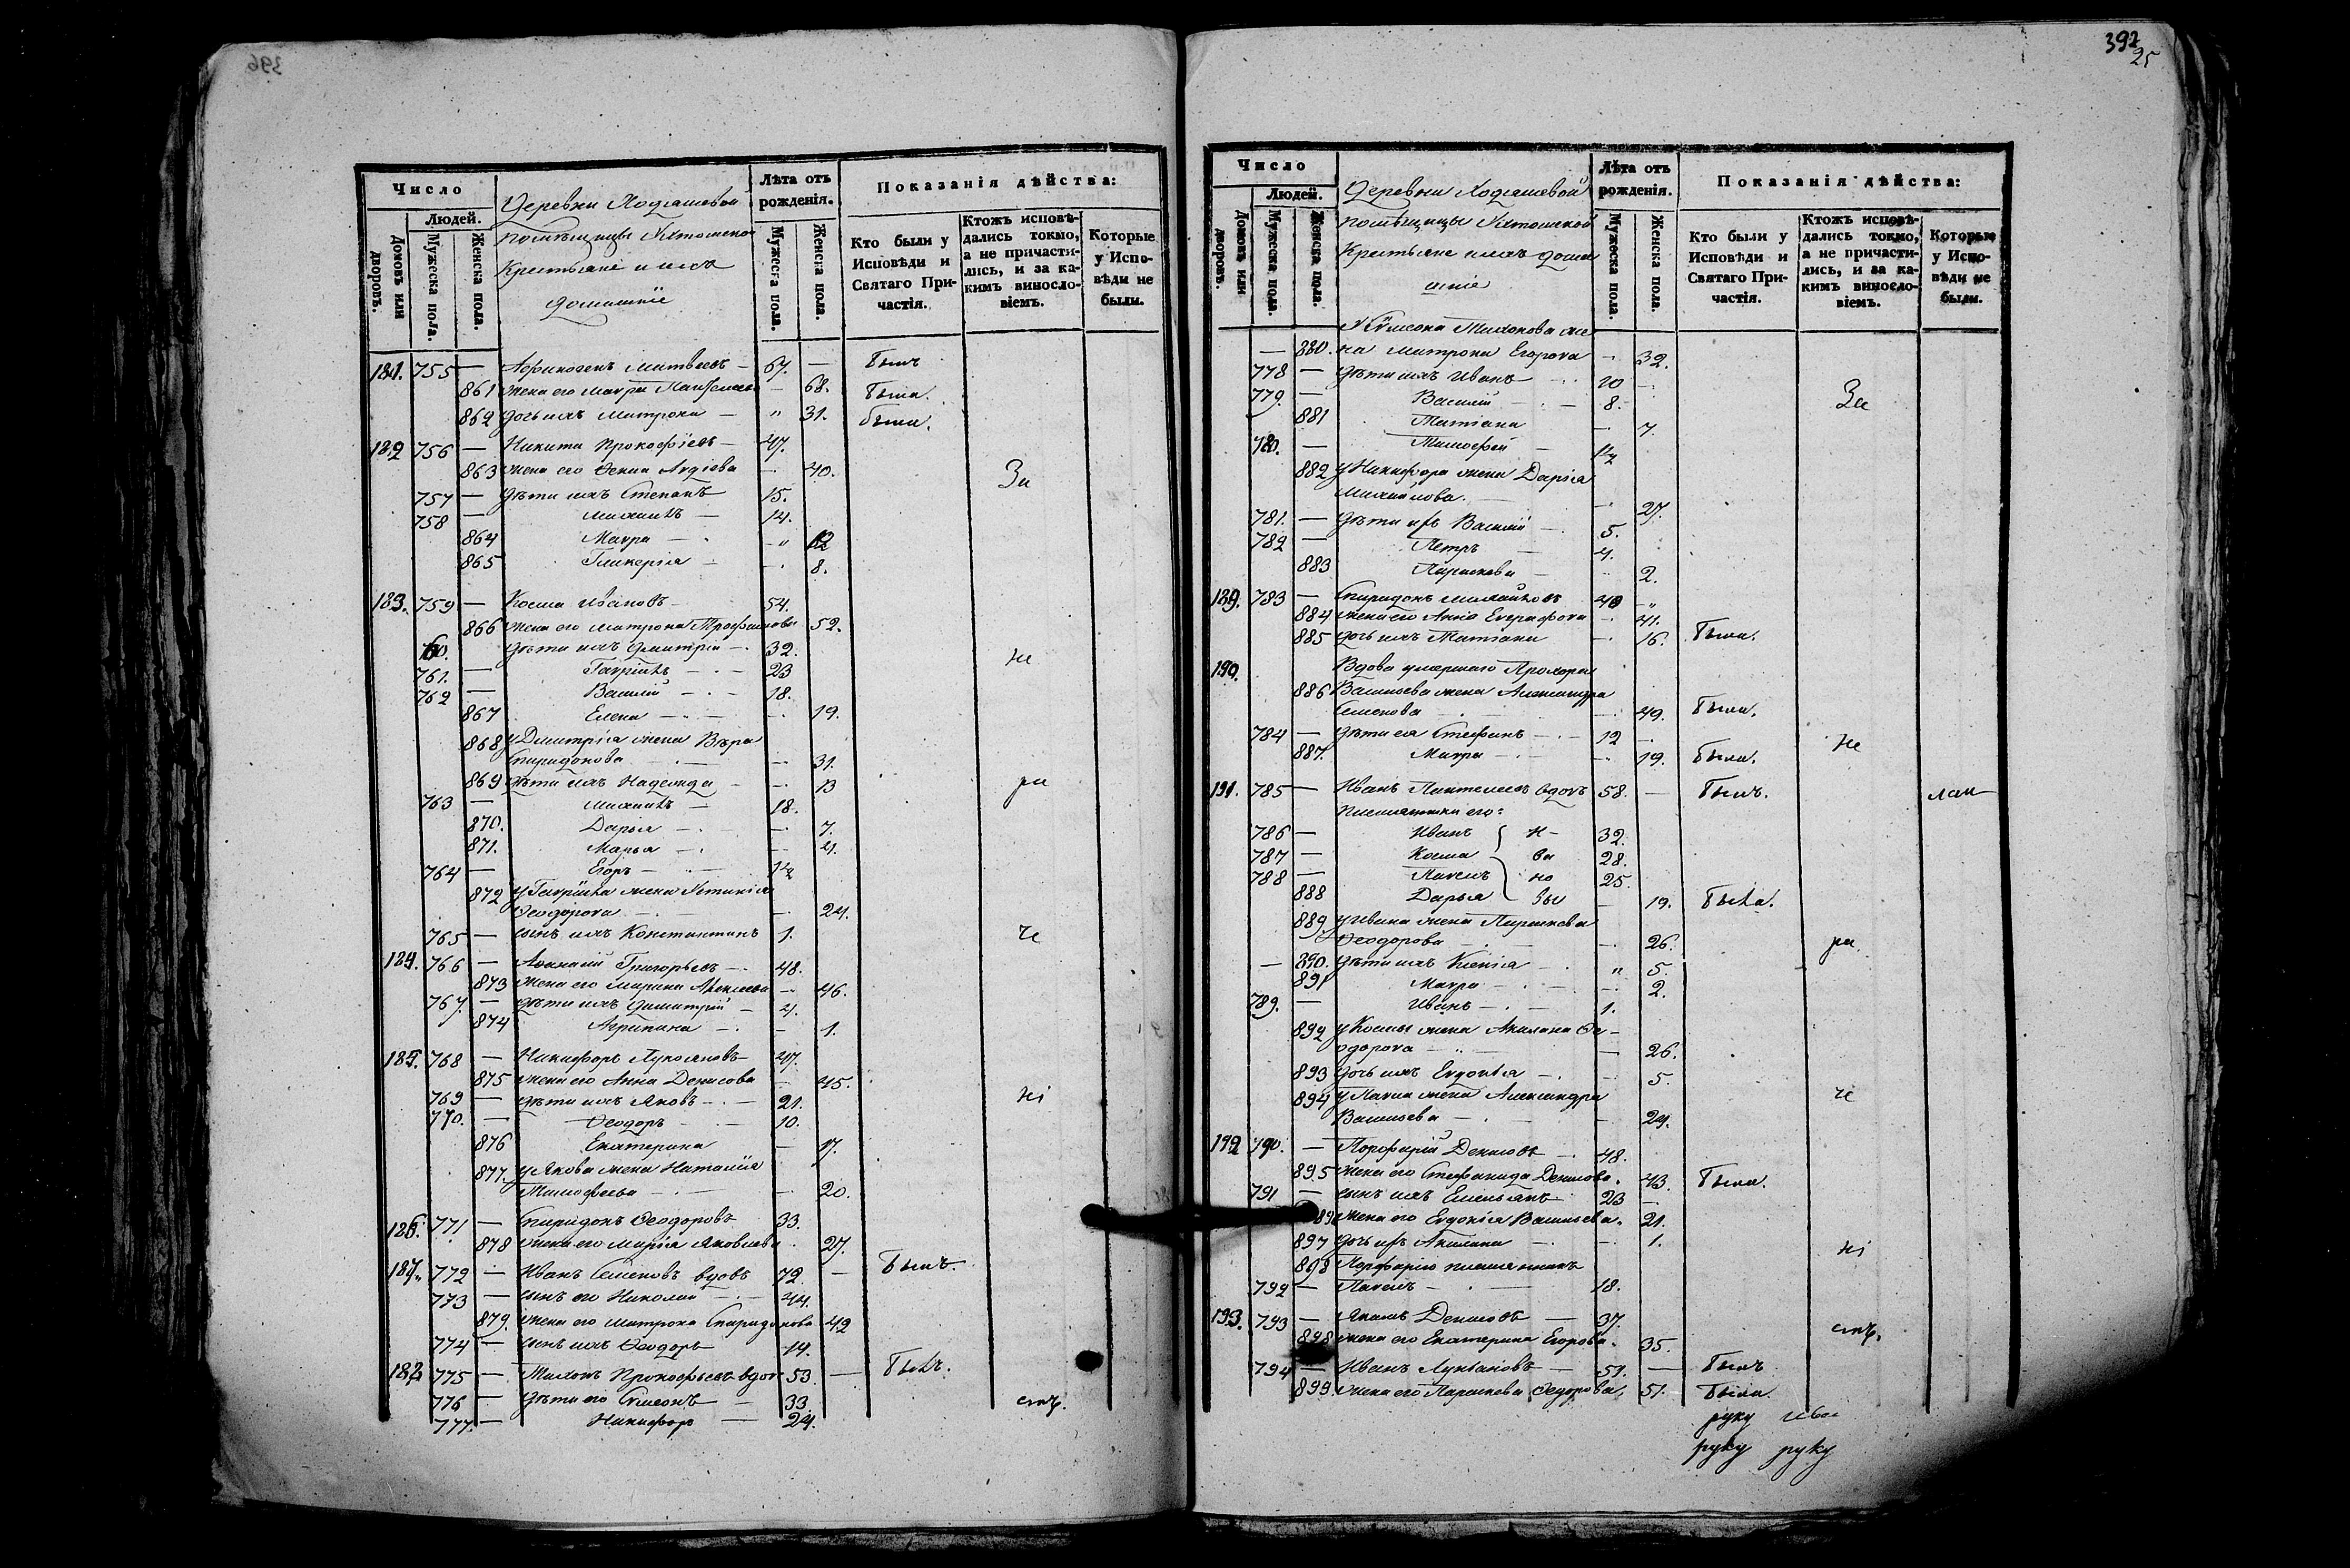 396
Число
Людей.
Домовъ или дворовъ.
Мужеска пола.
Женска пола.
Деревни
помѣщицы
Крестьяне и ихъ
домашніе
Лѣта отъ рожденія.
Мужеска пола.
Женска пола.
Показанія дѣйства:
Кто были у Исповѣди и Святаго Причастія.
Ктожъ исповѣдались токмо, а не причастились, и за какимъ винословіемъ.
Которые у Исповѣди не были.
181. 755 — Матвѣевъ — 67. — былъ
861 жена его Мавра — 68. была.
862 дочь ихъ Матрона — " 31. была.
182 756 — Никита Прокофіевъ — 47.
863 жена его Авдіева — 40.
За
757 — дѣти ихъ Степанъ 15.
758 — Михаилъ — 14.
864 Мавра — " 12
865 Гликерія — 8.
183. 759 — Косма Ивановъ — 54.
866 жена его Матрона Трофимова 52.
760. дѣти ихъ Димитрій — 32.
не
761. — Гавріилъ — 23
762 — Василій — 18.
867 Елена — 19.
868 у Димитрія жена Вѣра
Спиридонова — 31.
869 дѣти ихъ Надежда — 13
ра
763 — Михаилъ — 18.
870. Дарья — 7.
871. Марья — 4.
764 — Егоръ — 1/2
872 у Гавріила жена Устинія
Ѳеодорова — 24.
765 — сынъ ихъ Константинъ 1.
че
184. 766 — Аѳанасій Григорьевъ — 48.
873 жена его Марина Алексѣева — 46.
767. — дѣти ихъ Димитрій — 4.
874 Агрипина — 1.
185. 768 — Никифоръ Лукояновъ — 47.
875 жена его Анна Денисова — 45.
769 — дѣти ихъ Яковъ — 21.
ні
770. — Ѳеодоръ — 10.
876 Екатерина — 17.
877. у Якова жена Наталія
Тимофѣева — 20.
186. 771 — Спиридонъ Ѳеодоровъ 33.
878 жена его Марія Яковлева 27.
187. 772 — Иванъ Семеновъ вдовъ 72. — былъ.
773 — сынъ его Николай — 44.
879. жена его Матрона Спиридонова 42
774 — сынъ ихъ Ѳеодоръ 14.
188 775 — Тихонъ Прокофьевъ вдов 53 — былъ.
776 — дѣти его Сѵмеонъ — 33.
емъ.
777. — Никифоръ — 24.
397
25
Число
Людей.
Домовъ или дворовъ.
Мужеска пола.
Женска пола.
Деревни
помѣщицы
Крестьяне и ихъ дома
шніе
Лѣта отъ рожденія.
Мужеска пола.
Женска пола.
Показанія дѣйства:
Кто были у Исповѣди и Святаго Причастія.
Ктожъ исповѣдались токмо, а не причастились, и за какимъ винословіемъ.
Которые у Исповѣди не были.
У Сѵмеона Тихонова же
— 880. на Матрона Егорова — 32.
778 — дѣти ихъ Иванъ — 10 —
779. — Василій — 8.
За
881 Татіана — 7.
780. — Тимофей — 1/2
882 у Никифора жена Дарія
Михайлова. — 27.
781. — дѣти ихъ Василій — 5.
782 — Петръ — 4.
883 Параскева — 2.
189. 783 — Спиридонъ Михайловъ 40 "
884 жена его Анна Евграфова — 41.
885 дочь ихъ Татіана — 16. была.
190. Вдова умершаго Прохора
886 Васильева жена Александра
Семенова — 49. была.
784 — дѣти ея Стефанъ — 12 —
не
887. Мавра — 19. была.
191. 785 — Иванъ Пантелеевъ вдовъ 58. — былъ.
племянники его:
786 — Иванъ И- 32.
787 — Косма ва 28.
788 — Павелъ но 25.
888 Дарья вы — 19. была.
889. у Ивана жена Параскева
Ѳеодорова — 26.
ра
— 890. дѣти ихъ Ксенія — " 5.
891 Мавра — 2.
789. — Иванъ — 1.
892 у Космы жена Акилина Ѳе-
одорова — " — 26.
893 дочь ихъ Евдокія — 5.
894 у Павла жена Александра
че
Васильева — 24.
192 790. — Порфирій Денисовъ — 48.
895 жена его Стефанида Денисова. 43. была.
791 — сынъ ихъ Емельянъ 23 —
жена его Евдокія Васильева. 21.
897 дочь ихъ Акилина — 1.
ні
898 Порфирію племянникъ
792 — Павелъ — 18.
193. 793 — Якимъ Денисовъ — 37.
емъ.
898 жена его Екатерина Егорова. 35.
794 — Иванъ Лукьяновъ — 51. — былъ
899. жена его Параскева Ѳедорова. 51. была.
руку
руку руку